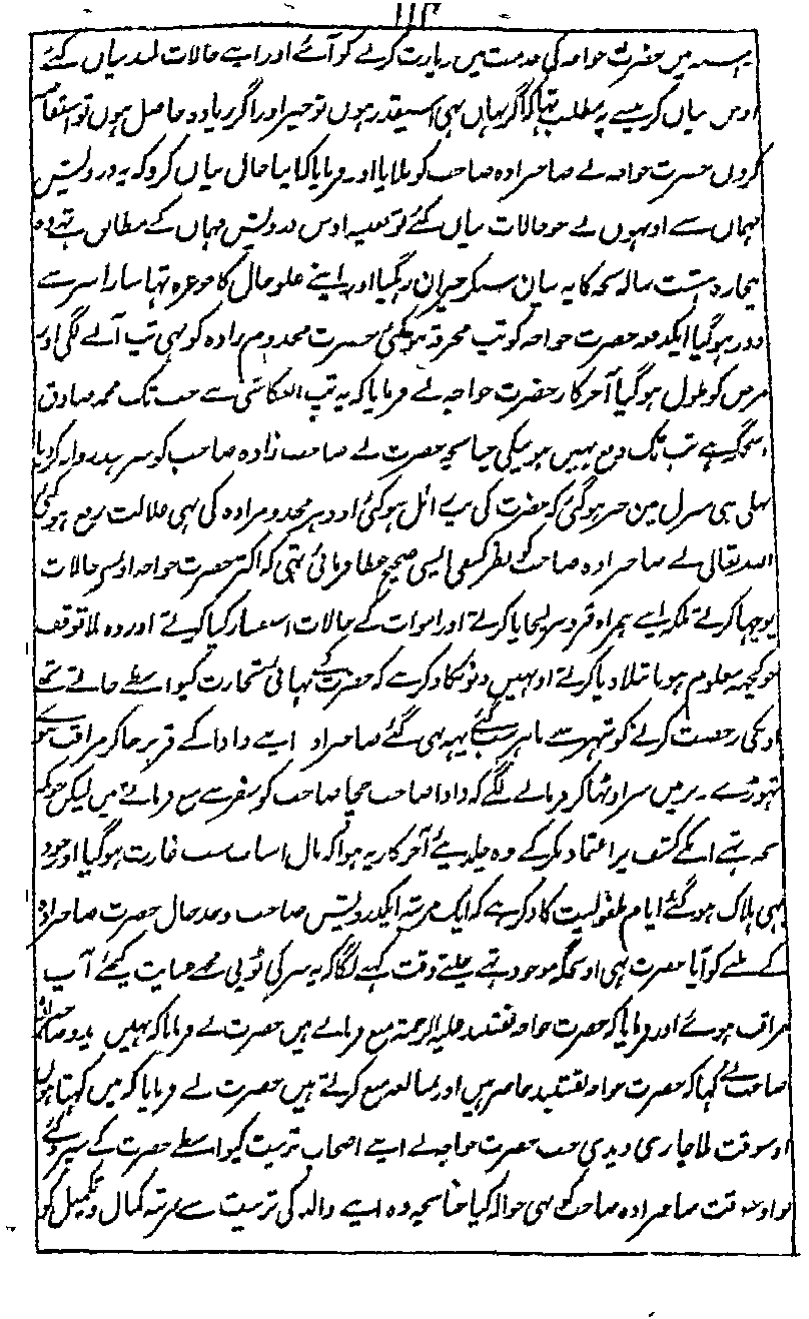 ۱۱۴
میں حضرت خواجہ کی خدمت میں زیارت کرنے کو آئے اور اپنے حالات بیان کئے
اوس بیان کرنیسے یہ مطلب تہا کہ اگر یہاں بہی اسیقدر ہوں تو خیر اور اگر زیادہ حاصل ہوں تو استفاضہ
کروں حضرت خواجہ نے صاحبزادہ صاحب کو بلایا اور فرمایا کہ اپنا حال بیاں کرو کہ یہ درویش
مہماں سے اونہوں نے جو حالات بیاں کئے تو بعینہ اوس درویش مہماں کے مطابق تہے وہ
بیچارہ ہشت سالہ بچہ کا یہ بیان سنکر حیران رہگیا اور اپنے علو حال کا جو غرہ تہا سارا سر سے
دور ہوگیا ایکدفعہ حضرت خواجہ کو تپ محرقہ ہوگئی حضرت مخدوم زادہ کو بہی تپ آنے لگی اور
مرض کو طول ہوگیا آخر کار حضرت خواجہ نے فرمایا کہ یہ تپ انعکاسی ہے جب تک محمد صادق
اسجگہ ہے تب تک دفع نہیں ہوسکی چنانچہ حضرت نے صاحب زادہ صاحب کو سرہند روانہ کردیا
پہلی ہی منزل میں خبر ہوگئی کہ حضرت کی تپ زائل ہوگئی اور ادہر مخدومزادہ کی بہی علالت رفع ہوگئی
اللہ تعالی نے صاحبزادہ صاحب کو نظر کشفی ایسی صحیح عطا فرمائی تہی کہ اکثر حضرت خواجہ اونسے حالات
پوچہا کرتے بلکہ اپنے ہمراہ قبروں پر لیجایا کرتے اور اموات کے حالات استفسار کیا کرتے اور وہ بلا توقف
جو کچہہ معلوم ہوتا بتلا دیا کرتے اونہیں دنونکا ذکر ہے کہ حضرت کے بہائی تجارت کیواسطے جاتے تہے
اونکی رخصت کرنے کو شہر سے باہر سب گئے یہہ بہی گئے صاحبزادہ اپنے دادا کے قبر پر جاکر مراقب ہوئے
تہوڑے دیر میں سر اوٹہا کر فرمانے لگے کہ دادا صاحب چچا صاحب کو سفر سے منع فرماتے ہیں لیکن چونکہ
بچہ تہے انکے کشف پر اعتماد نکرکے وہ چلدیئے آخر کار یہ ہوا کہ مال اسباب سب غارت ہوگیا اور خود
بہی ہلاک ہوگئے ایام طفولیت کا ذکر ہے کہ ایک مرتبہ ایکدرویش صاحب وجد حال حضرت صاحبزادہ
کے ملنے کو آیا حضرت بہی اوسجگہ موجود تہے چلتے وقت کہنے لگا کہ یہ سر کی ٹوپی مجھے عنایت کیجئے آپ
مراقب ہوئے اور فرمایا کہ حضرت خواجہ نقشبند علیہ الرحمۃ منع فرماتے ہیں حضرت نے فرمایا کہ نہیں دیدو صاحبزادہ
صاحب نے کہا کہ حضرت خواجہ نقشبند حاضر ہیں اور بمبالغہ منع کرتے ہیں حضرت نے فرمایا کہ میں کہتا ہوں
اوسوقت بلاچاری دیدی جب حضرت خواجہ نے اپنے اصحاب تربیت کیواسطے حضرت کے سپرد کئے
تو اوسوقت صاحبزادہ صاحب کو بہی حوالہ کیا چنانچہ وہ اپنے والد کی تربیت سے مرتبہ کمال و تکمیل کو